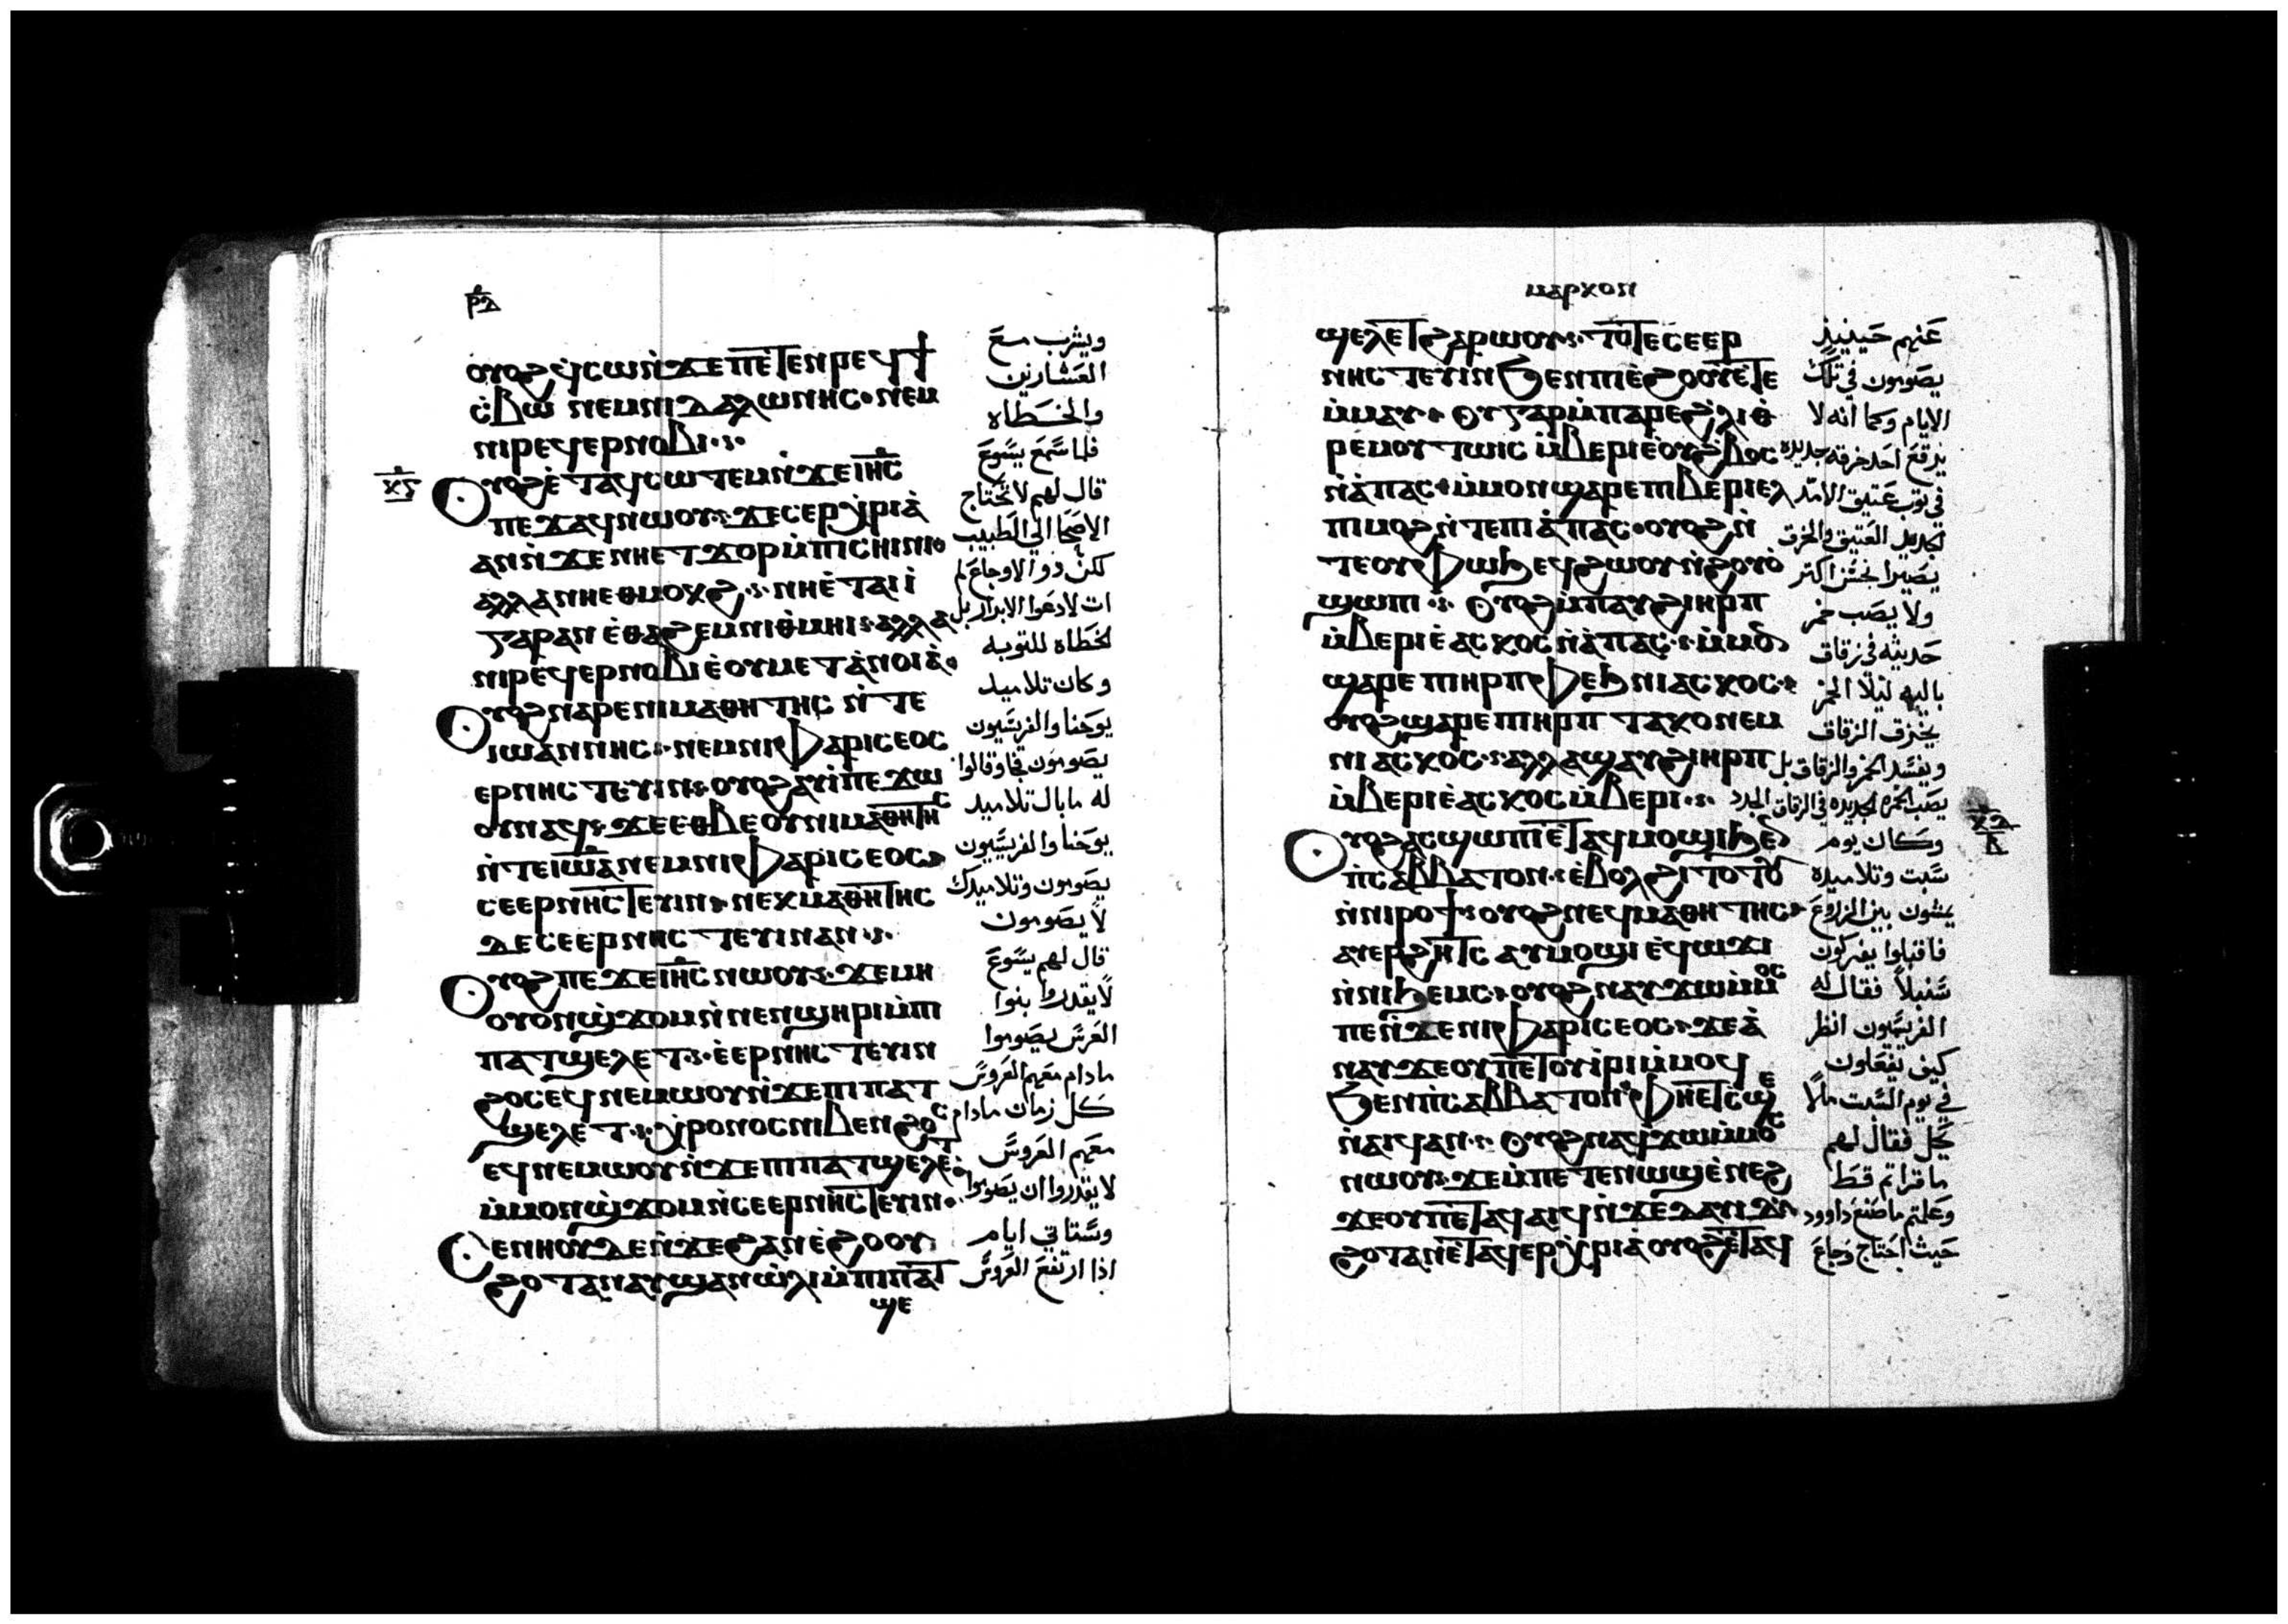 ⲣⲇ
ⲟⲩⲟϩ ϥⲥⲱ ⲛ̀ϫⲉ ⲡⲉⲧⲉⲛⲣⲉϥϯ
ⲥⲃⲱ ⲛⲉⲙ ⲛⲓⲇⲁⲗⲱⲛⲏⲥ ⲛⲉⲙ
ⲛⲓⲣⲉϥⲉⲣⲛⲟⲃⲓ
ⲟⲩⲟϩ ⲉ̀ⲧⲁϥⲥⲱⲧⲉⲙ ⲛ̀ϫⲉ ⲓⲏⲥ
ⲡⲉϫⲁϥ ⲛⲱⲟⲩ ϫⲉ ⲥⲉⲣⲭⲣⲓⲁ̀
ⲁⲛ ⲛ̀ϫⲉ ⲛⲏⲉⲧϫⲟⲣ ⲙ̀ⲡⲓⲥⲏⲓⲛⲓ
ⲁⲗⲗⲁ ⲛⲏⲉⲑⲙⲟⲕϩ ⲛⲏⲉⲧⲁⲓⲓ̀
ⲅⲁⲣ ⲁⲛ ⲉ̀ⲑⲁϩⲉⲙ ⲛⲓⲑⲙⲏⲓ ⲁⲗⲗⲁ
ⲛⲓⲣⲉϥⲉⲣⲛⲟⲃⲓ ⲉ̀ⲟⲩⲙⲉⲧⲁ̀ⲛⲟⲓⲁ̀
ⲟⲩⲟϩ ⲛⲁⲣⲉ ⲛⲓⲙⲁⲑⲏⲧⲏⲥ ⲛ̀ⲧⲉ
ⲓⲱⲁⲛⲛⲏⲥ ⲛⲉⲙ ⲛⲓⲫⲁⲣⲓⲥⲉⲟⲥ
ⲉⲣⲛⲏⲥⲧⲉⲩⲓⲛ ⲟⲩⲟϩ ⲁⲩⲓ̀ ⲡⲉϫⲱ
ⲟⲩ ⲛⲁϥ ϫⲉ ⲉⲑⲃⲉⲟⲩ ⲛⲓⲙⲁⲑⲏⲧⲏⲥ
ⲛ̀ⲧⲉ ⲓⲱⲁ ⲛⲉⲙ ⲛⲓⲫⲁⲣⲓⲥⲉⲟⲥ
ⲥⲉⲉⲣⲛⲏⲥⲧⲉⲩⲓⲛ ⲛⲉⲕⲙⲁⲑⲏⲧⲏⲥ
ⲇⲉ ⲥⲉⲉⲣⲛⲏⲥⲧⲉⲩⲓⲛ ⲁⲛ
ⲟⲩⲟϩ ⲡⲉϫⲉ ⲓⲏⲥ ⲛⲱⲟⲩ ϫⲉ ⲙⲏ
ⲟⲩⲟⲛ ϣ̀ϫⲟⲙ ⲛ̀ⲛⲉⲛϣⲏⲣⲓ ⲙ̀ⲡⲓ
ⲡⲁⲧϣⲉⲗⲉⲧ ⲉ̀ⲉⲣⲛⲏⲥⲧⲉⲩⲓⲛ
ϩⲟⲥ ⲉϥⲛⲉⲙⲱⲟⲩ ⲛ̀ϫⲉ ⲡⲓⲡⲁⲧ
ϣⲉⲗⲉⲧ ⲭⲣⲟⲛⲟⲥ ⲛⲓⲃⲉⲛ ϩⲟⲥ
ⲉϥⲛⲉⲙⲱⲟⲩ ⲛ̀ϫⲉ ⲡⲓⲡⲁⲧϣⲉⲗⲉⲧ
ⲙ̀ⲙⲟⲛ ϣ̀ϫⲟⲙ ⲛ̀ⲥⲉⲉⲣⲛⲏⲥⲧⲉⲩⲓⲛ
ⲥⲉⲛⲏⲟⲩ ⲇⲉ ⲛ̀ϫⲉ ϩⲁⲛⲉ̀ϩⲟⲟⲩ
ϩⲟⲧⲁⲛ ⲁⲩϣⲁⲛⲱ̀ⲗⲓ ⲙ̀ⲡⲓⲡⲁⲧ
ϣⲉ
ويشرب مع
العشارين
والخطاه
فلما سمع يسوع
قال لهم لا تحتاج
الاصحا الي الطبيب
لكن ذو الاوجاع لم
ات لادعوا الابرار بل
الخطاه للتوبه
وكان تلاميد
يوحنا والفريسيون
يصومون فجا وقالوا
له ما بال تلاميد
يوحنا والفريسيون
يصومون وتلاميدك
لا يصومون
قال لهم يسوع
لا يقدروا بنوا
العرس يصوموا
مادام معهم العروس
كل زمان مادام
معهم العروس
لا يقدروا ان يصوموا
وستاتي ايام
اذا ارتفع العروس
ⲙⲁⲣⲕⲟⲛ
ϣⲉⲗⲉⲧ ϩⲁⲣⲱⲟⲩ ⲧⲟⲧⲉ ⲥⲉⲉⲣ
ⲛⲏⲥⲧⲉⲩⲓⲛ ϧⲉⲛ ⲛⲓⲉ̀ϩⲟⲟⲩ ⲉ̀ⲧⲉ
ⲙ̀ⲙⲁⲩ ⲟⲩ ⲅⲁⲣ ⲙ̀ⲡⲁⲣⲉ ϩ̀ⲗⲓ
ⲣⲉⲙⲟⲩ ⲧⲱⲓⲥ ⲙ̀ⲃⲉⲣⲓ ⲉ̀ⲟⲩϩ̀ⲃⲟⲥ
ⲛ̀ⲁ̀ⲡⲁⲥ ⲙ̀ⲙⲟⲛ ϣⲁⲣⲉ ⲡⲓⲃⲉⲣⲓ ⲉⲗ
ⲡⲓⲙⲟϩ ⲛ̀ⲧⲉ ⲡⲓⲁ̀ⲡⲁⲥ ⲟⲩⲟϩ ⲛ̀
ⲧⲉ ⲟⲩⲫⲱϧ ⲉϥϩⲱⲟⲩ ⲛ̀ϩⲟⲩⲟ̀
ϣⲱⲡⲓ ⲟⲩⲟϩ ⲙ̀ⲡⲁⲩϩⲓ ⲏⲣⲡ
ⲙ̀ⲃⲉⲣⲓ ⲉ̀ⲁⲥⲕⲟⲥ ⲛ̀ⲁ̀ⲡⲁⲥ ⲙ̀ⲙⲟⲛ
ϣⲁⲣⲉ ⲡⲓⲏⲣⲡ ⲫⲉϧ ⲛⲓⲁⲥⲕⲟⲥ
ⲟⲩⲟϩ ϣⲁⲣⲉ ⲡⲓⲏⲣⲡ ⲧⲁⲕⲟ ⲛⲉⲙ
ⲛⲓⲁⲥⲕⲟⲥ ⲁⲗⲗⲁ ϣⲁⲩϩⲓ ⲏⲣⲡ
ⲙ̀ⲃⲉⲣⲓ ⲉ̀ⲁⲥⲕⲟⲥ ⲙ̀ⲃⲉⲣⲓ
ⲟⲩⲟϩ ⲁⲥϣⲱⲡⲓ ⲉ̀ⲧⲁϥⲙⲟϣⲓ ϧⲉⲛ
ⲡⲥⲁⲃⲃⲁⲧⲟⲛ ⲉ̀ⲃⲟⲗ ϩⲓⲧⲟⲧⲟⲩ
ⲛ̀ⲛⲓⲣⲟϯ ⲟⲩⲟϩ ⲛⲉϥⲙⲁⲑⲏⲧⲏⲥ
ⲁⲩⲉⲣϩⲏⲧⲥ ⲁⲩⲙⲟϣⲓ ⲉ̀ϥⲱϫⲓ
ⲛ̀ⲛⲓϧⲉⲙⲥ ⲟⲩⲟϩ ⲛⲁⲩϫⲱ ⲙ̀ⲙⲟⲥ
ⲡⲉ ⲛ̀ϫⲉ ⲛⲓⲫⲁⲣⲓⲥⲉⲟⲥ ϫⲉ ⲁ̀
ⲛⲁⲩ ϫⲉ ⲟⲩ ⲡⲉⲧⲟⲩⲓⲣⲓ ⲙ̀ⲙⲟϥ
ϧⲉⲛ ⲡⲥⲁⲃⲃⲁⲧⲟⲛ ⲫⲏⲉⲧⲥϣⲉ
ⲛ̀ⲁⲓϥ ⲁⲛ ⲟⲩⲟϩ ⲛⲁϥϫⲱ ⲙ̀ⲙⲟⲥ
ⲛⲱⲟⲩ ϫⲉ ⲙ̀ⲡⲉⲧⲉⲛⲱϣ ⲉ̀ⲛⲉϩ
ϫⲉ ⲟⲩ ⲡⲉⲧⲁϥⲁⲓϥ ⲛ̀ϫⲉ ⲇⲁⲩⲓⲇ
ϩⲟⲧⲁⲛ ⲉ̀ⲧⲁϥⲉⲣⲭⲣⲓⲁ ⲟⲩⲟϩ ⲉ̀ⲧⲁϥ
عنهم حينيذ
يصومون في تلك
الايام وكما انه لا
يرقع احد خرقه جديده
في ثوب عتيق الا تمد
الجديد العتيق والخرق
يصيرا نجس اكتر
ولا يصب خمر
حديثه في زقاق
باليه ليلا الخمر
يخرق الزقاق
ويفسد الخمر والزقاق بل
يصب الخمره الجديده في الزقاق الجدد
وكان يوم
سبت وتلاميده
يمشون بين الزاروع
فاقبلوا يفركون
سنبلاً فقال له
الفريسيون انظر
كيف يفعلون
في يوم السبت مالا
يحل فقال لهم
ما قراتم قط
وعلمتم ما صنع داوود
حيث احتاج وجاع